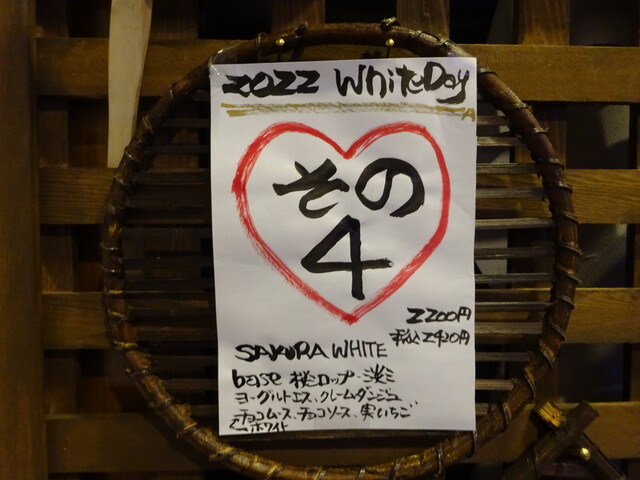 2022 WhiteDay
その
4
2200円
税込2420円
SAKURA WHITE
base 桜シロップ
ヨーグルトエス、クレームダンジュ
チョコムース、チョコソース、実いちご
ホワイト